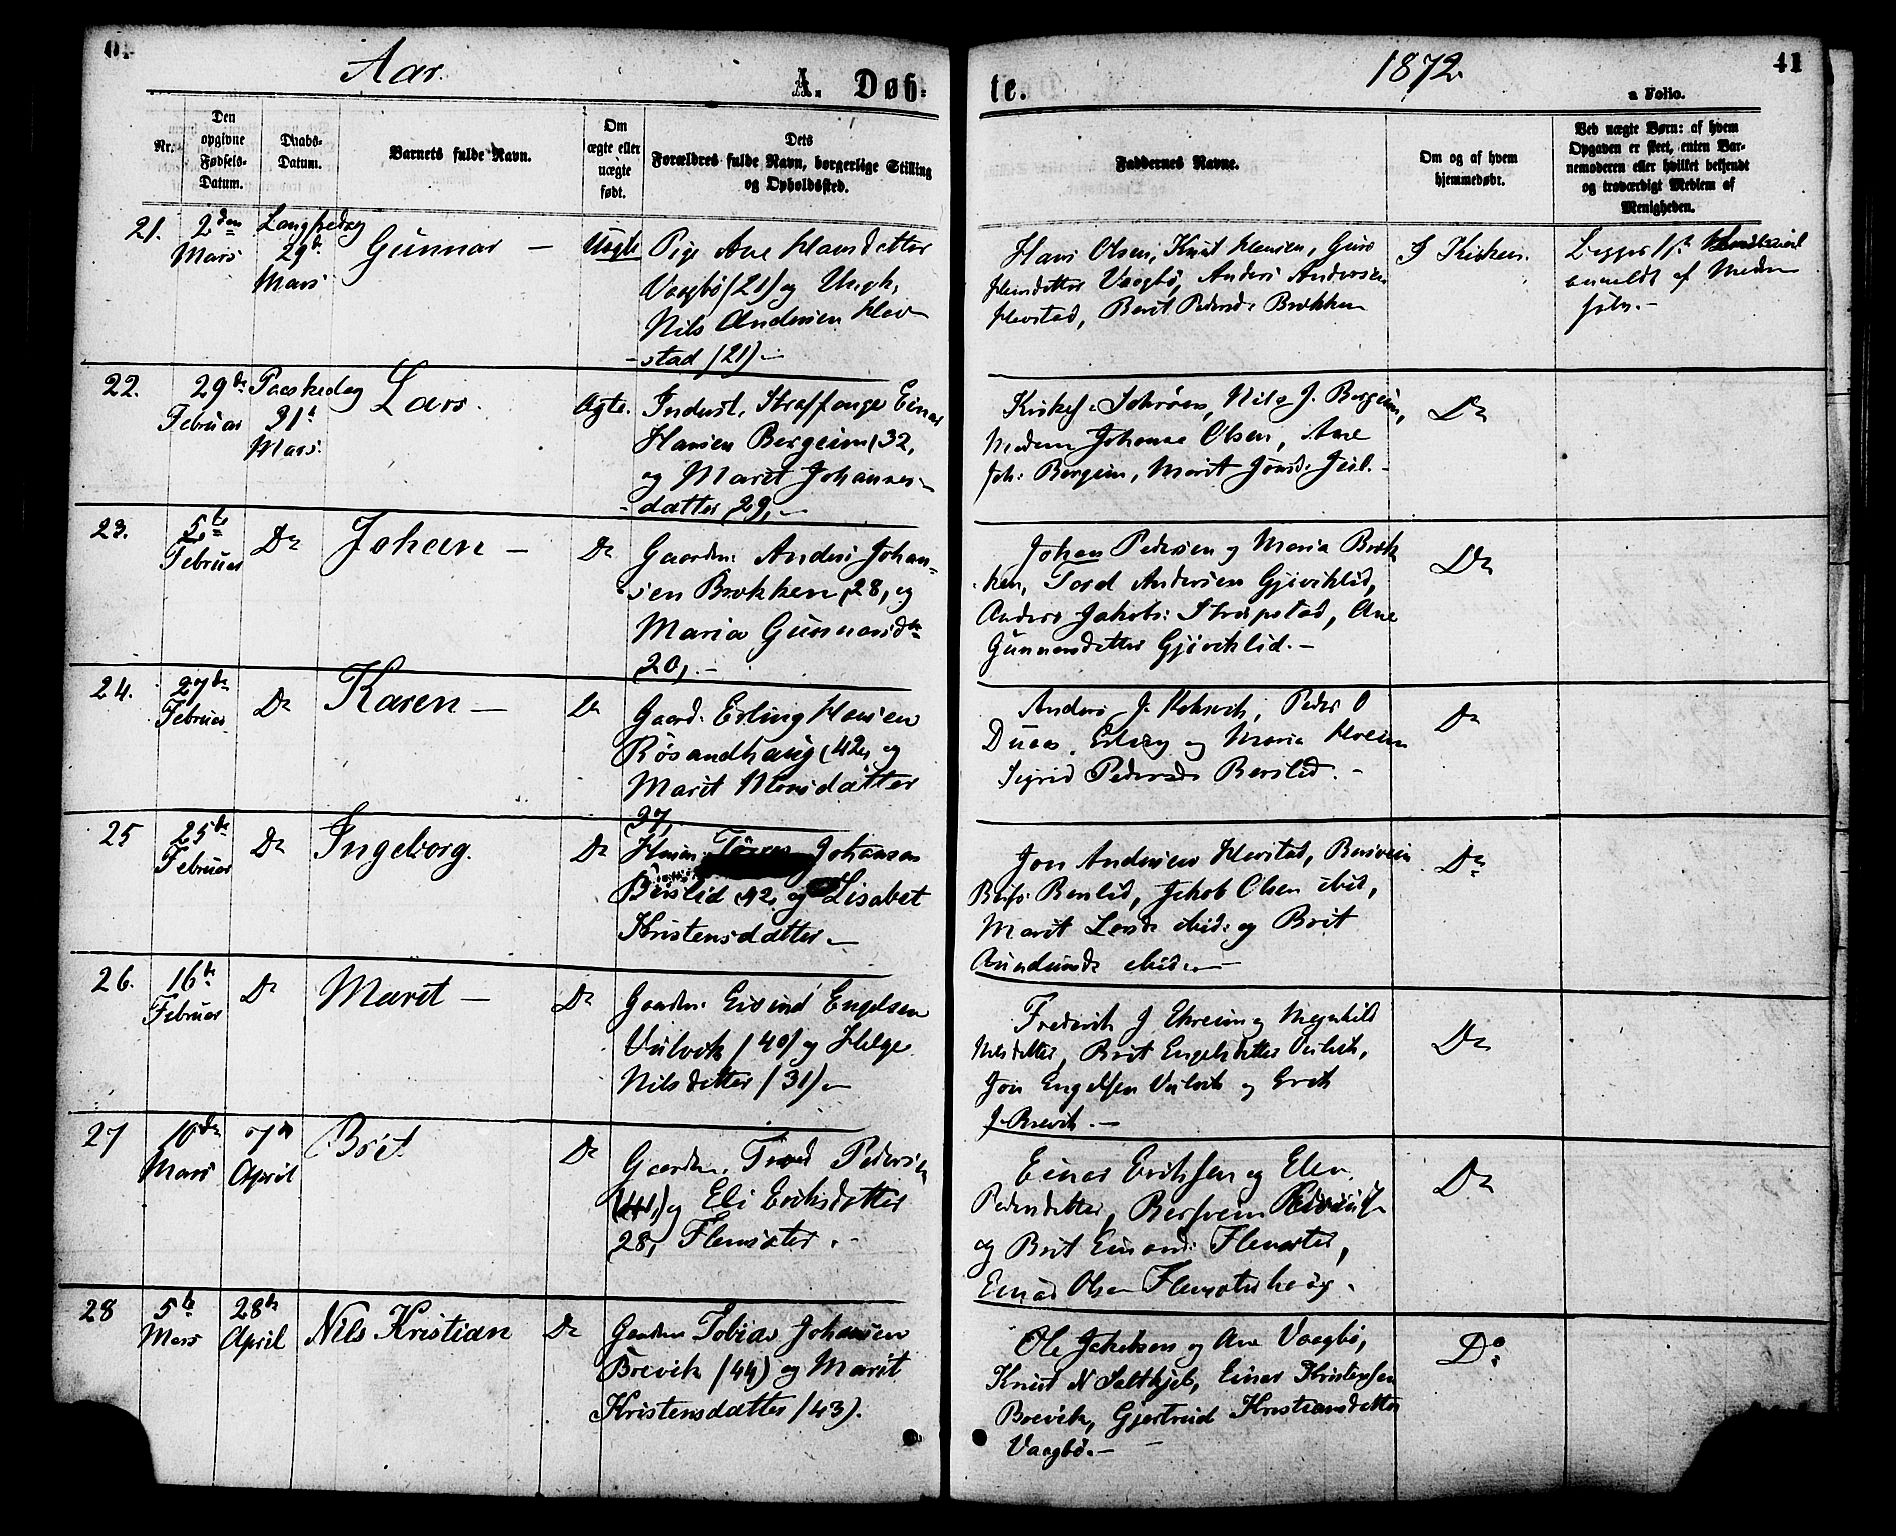 Aar
A. Døb-
te.
1872
41
a Folio.
Nr.
Den
opgivne
Fødsels-
Datum.
Daabs-
Datum.
Barnets fulde Navn.
Om
ægte eller
uægte
født.
Dets
Forældres fulde Navn, borgerlige Stilling
og Opholdssted.
Faddernes Navne.
Om og af hvem
hjemmedøbt.
Ved uægte Børn: af hvem
Opgaven er skeet, enten Bar-
nemoderen eller hvilket bekjendt
og troværdigt Medlem af
Menigheden.
21.
2den
Mars
Langfredag
29de
Mars
Gunnar —
Uægte
Pige Ane Hansdatter
Vaagbø (21) og Ungk.
Nils Andersen Hev-
stad (21) —
Hans Olsen, Knut Hansen, Guro
Hansdatter Vaagbø, Anders Andersen
Hevstad, Berit Pedersd. Brokken
I Kirken.
anmeldt af
22.
29de
Februar
Paaskedag
31te
Mars
Lars.
Ægte.
Inderst, Straffange Einar
Hansen Bergeim (32,
og Marit Johannes-
datter 29, —
Nils J. Bergeim,
Johanne Olsen, Ane
Joh. Bergeim, Marit Jonsd.
Do
23.
5te
Februar
Do
Johan —
Do
Gaardm. Anders Johan-
sen Brokken, 28, og
Maria Gunnarsdtr
20, —
Johan Pedersen og Maria Brok-
ken, Tord Andersen Gjeviklid,
Anders Jakobs. Strupstad, Ane
Gunnarsdatter Gjeviklid. —
Do
24.
27de
Februar
Do
Karen —
Do
Gaard. Erling Hansen
Røsandhaug (42, og
Marit Monsdatter
37,
Anders J. Peder O
Erling og Maria
Sigrid Pedersd. Berslid. —
Do
25
25de
Februar
Do
Ingeborg.
Do
Johansen
Berslid 42, og Lisabet
Kristensdatter —
Jon Andersen Hevstad, Bersvein
Berslid, Jakob Olsen ibid,
Marit Larsd. ibid. og Brit
ibid. —
Do
26.
16de
Februar
Do
Marit —
Do
Gaardm. Eivind Engelsen
Vulvik (40) og Helge
Nilsdatter (31) —
Frederik J. Ekreim og Magnhild
Nilsdatter, Brit Engelsdatter Vulvik,
Jon Engelsen Vulvik og Erik
J. Brevik. —
Do
27
10de
Mars
7de
April
Brit
Do
Gaardm. Trond Pedersen
(41) og Eli Eriksdatter
28, Flemsæter. —
Einar Eriksen og Elen
Pedersdatter, Bersvein
og Brit Einarsd. Flemsæter,
Einar Olsen Flemsæterhaug.
Do
28
5te
Mars
28de
April
Nils Kristian
Do
Gaardm. Tobias Johansen
Brevik (44) og Marit
Kristensdatter (43).
Ole Jakobsen og Ane Vaagbø,
Knut N Saltkjel, Einar Kristensen
Brevik, Gjertrud Kristiansdatter
Vaagbø. —
Do